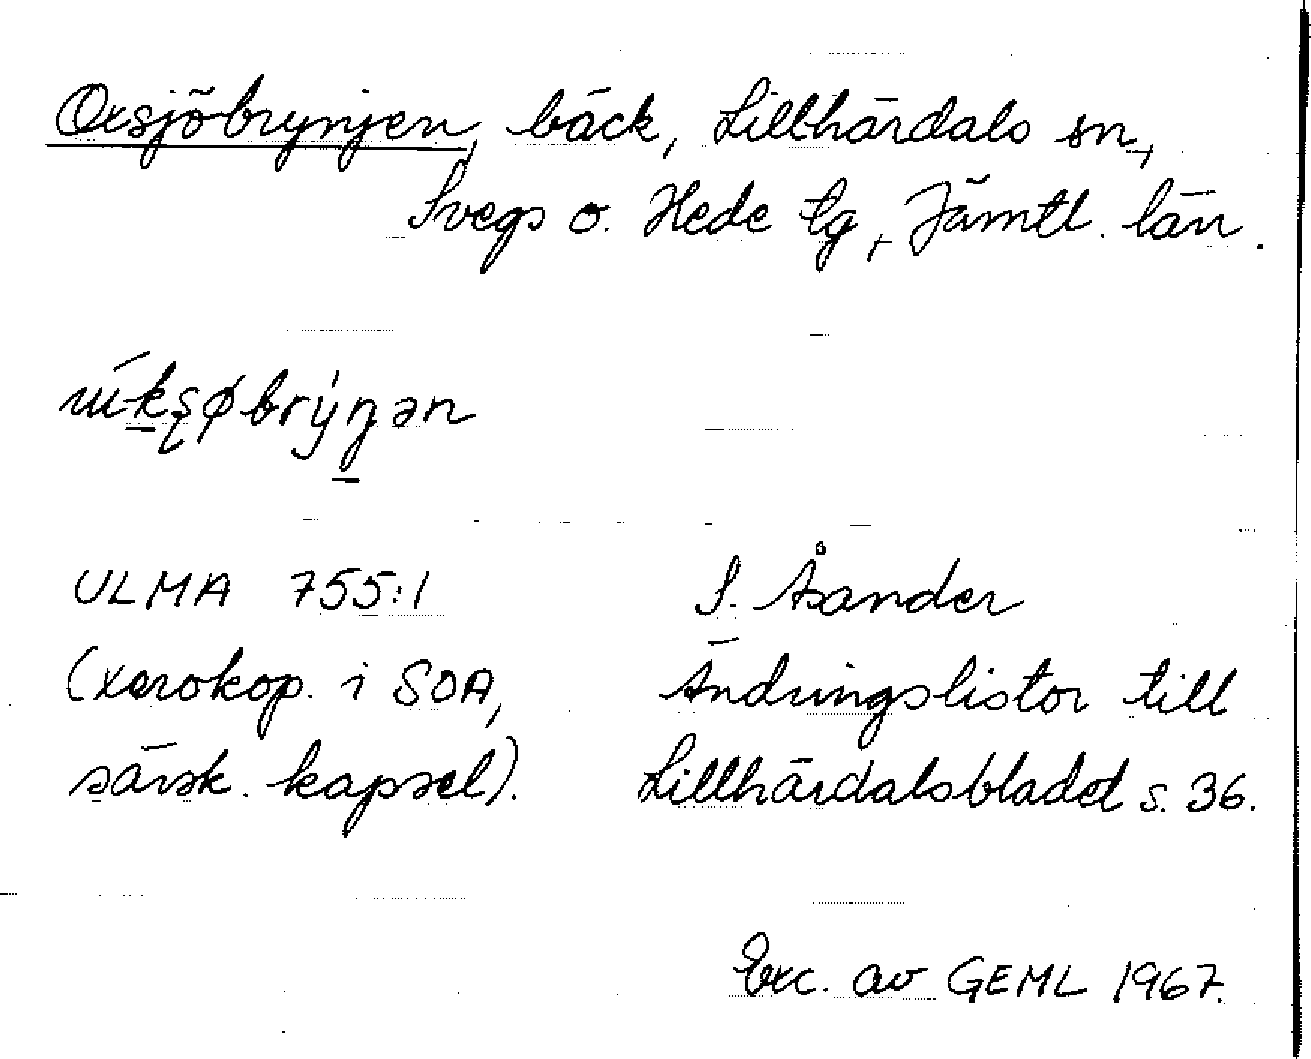 Oxsjöbrynjen, bäck, Lillhärdals sn,
Svegs o. Hede tg, Jämtl. län.
ULMA 755:1
S. Åsander
(xerokop. i SOA,
Ändringslistor till
särsk. kapsel).
Lillhärdalsbladet s. 36.
Exc. av GEML 1967.